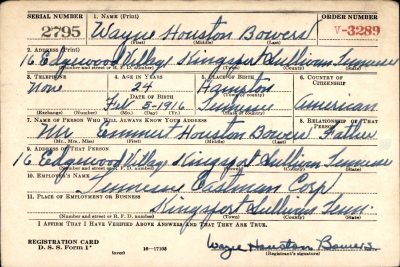 SERIAL NUMBER 1. NAME (Print) ORDER NUMBER
2795 Wayne Houston Bowers V-3289
(First) (Middle) (Last)
2. ADDRESS (Print)
16 Edgewood Village Kingsport Sullivan Tennessee
(Number and street or R. F. D. number) (Town) (County) (State)
3. TELEPHONE 4. AGE IN YEARS 5. PLACE OF BIRTH 6. COUNTRY OF CITIZENSHIP
None 24 Hampton
DATE OF BIRTH (Town or county)
Feb. 5-1916 Tennessee American
(Exchange) (Number) (Mo.) (Day) (Yr.) (State or country)
7. NAME OF PERSON WHO WILL ALWAYS KNOW YOUR ADDRESS 8. RELATIONSHIP OF THAT PERSON
Mr. Emmert Houston Bowers Father
(Mr., Mrs., Miss) (First) (Middle) (Last)
9. ADDRESS OF THAT PERSON
16 Edgewood Village Kingsport Sullivan Tennessee
(Number and street or R. F. D. number) (Town) (County) (State)
10. EMPLOYER'S NAME
Tennessee Eastman Corp.
11. PLACE OF EMPLOYMENT OR BUSINESS
Kingsport Sullivan Tenn.
(Number and street or R. F. D. number) (Town) (County) (State)
I AFFIRM THAT I HAVE VERIFIED ABOVE ANSWERS AND THAT THEY ARE TRUE.
REGISTRATION CARD
D. S. S. Form 1 (over) 16-17105
Wayne Houston Bowers
(Registrant's signature)